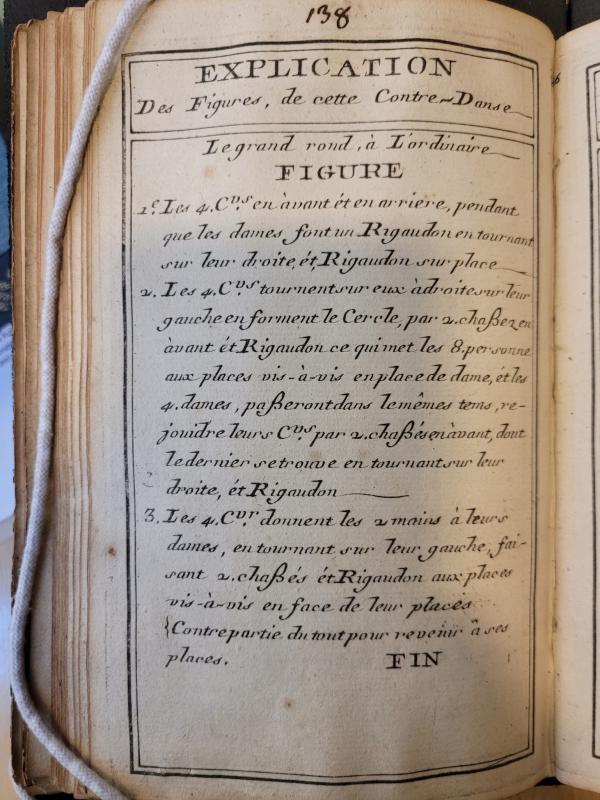 138
EXPLICATION
Des Figures, de cette Contre-Danse
Le grand rond, à L'ordinaire
FIGURE
1.e Les 4. C.vs en àvant ét en arriere, pendant
que les dames font un Rigaudon en tournant
sur leur droite, ét Rigaudon sur place
2. Les 4. C.vs tournent sur eux à droite sur leur
gauche en forment le Cercle, par 2. chaßez en
àvant ét Rigaudon ce qui met les 8. personne
aux places vis-à-vis en place de dame, ét les
4. dames, paßeront dans le mêmes tems, re-
joindre leurs C.vs par 2. chaßés en àvant, dont
le dernier se trouve en tournant sur leur
droite, ét Rigaudon
3. Les 4. C.vr donnent les 2 mains à leurs
dames, en tournant sur leur gauche, fai-
sant 2. chaßés ét Rigaudon aux places
vis-à-vis en face de leur places
Contrepartie du tout pour revenir à ses
places. FIN
6